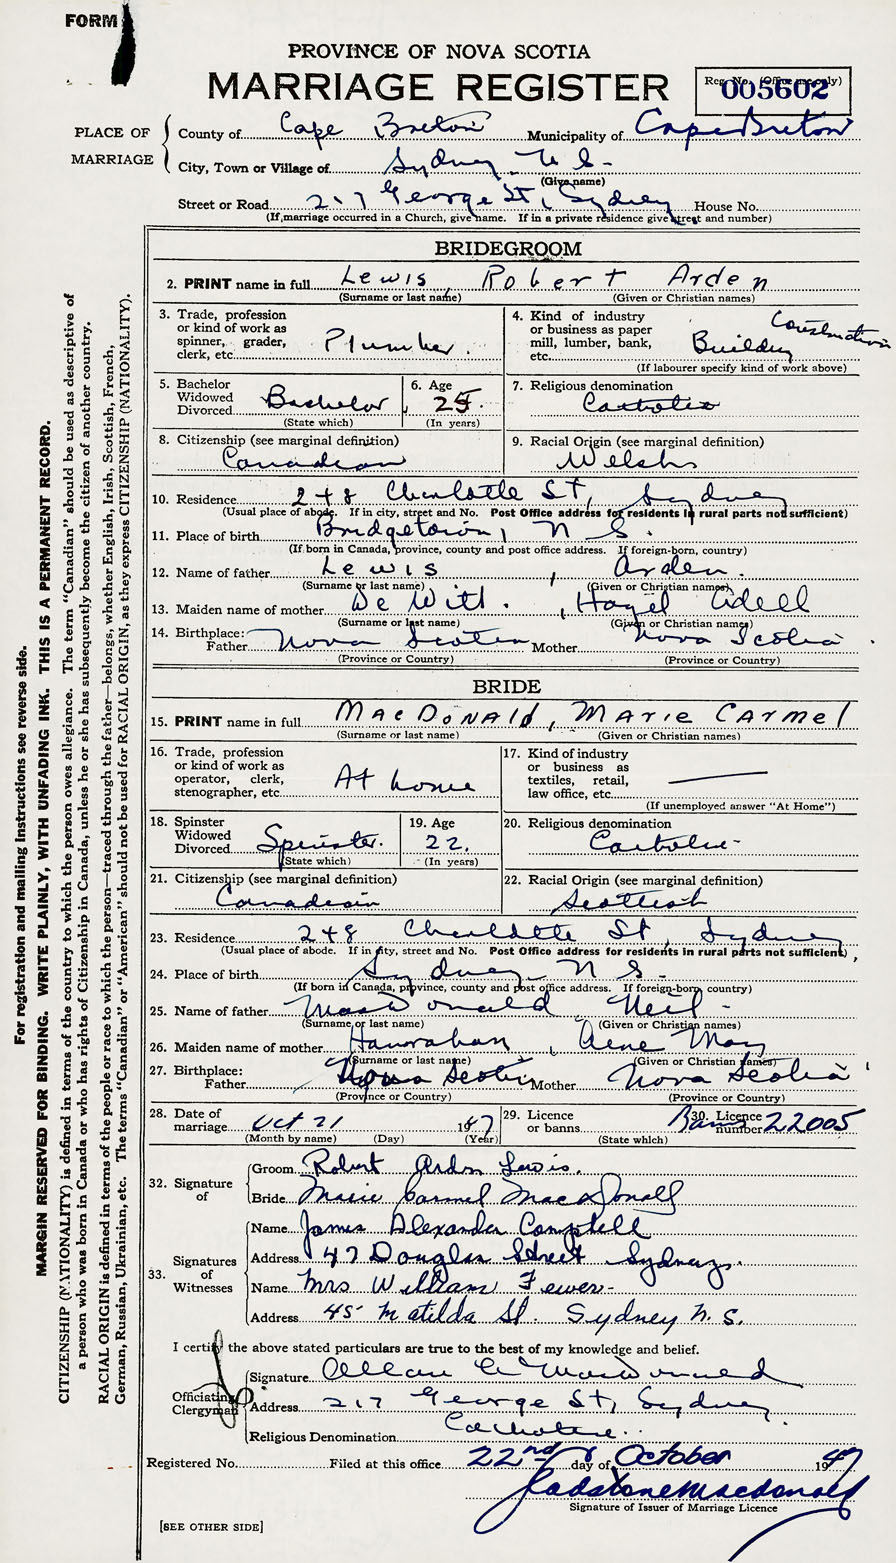 FORM
PROVINCE OF NOVA SCOTIA
MARRIAGE REGISTER
Reg. No. (Office use only)
005602
PLACE OF MARRIAGE
County of Cape Breton Municipality of Cape Breton
City, Town or Village of Sydney N S-
(Give name)
Street or Road 217 George St, Sydney House No.
(If marriage occurred in a Church, give name. If in a private residence give street and number)
BRIDEGROOM
2. PRINT name in full Lewis, Robert Arden
(Surname or last name) (Given or Christian names)
3. Trade, profession or kind of work as spinner, grader, clerk, etc. Plumber.
4. Kind of industry or business as paper mill, lumber, bank, etc. Building Construction
(If labourer specify kind of work above)
5. Bachelor Widowed Divorced Bachelor
(State which)
6. Age 25.
(In years)
7. Religious denomination Catholic
8. Citizenship (see marginal definition) Canadian
9. Racial Origin (see marginal definition) Welsh
10. Residence 248 Charlotte St, Sydney
(Usual place of abode. If in city, street and No. Post Office address for residents in rural parts not sufficient)
11. Place of birth Bridgetown, N S.
(If born in Canada, province, county and post office address. If foreign-born, country)
12. Name of father Lewis, Arden.
(Surname or last name) (Given or Christian names)
13. Maiden name of mother De Witt. , Hazel Adell
(Surname or last name) (Given or Christian names)
14. Birthplace: Father Nova Scotia Mother Nova Scotia
(Province or Country) (Province or Country)
BRIDE
15. PRINT name in full MacDonald, Marie Carmel
(Surname or last name) (Given or Christian names)
16. Trade, profession or kind of work as operator, clerk, stenographer, etc. At home
17. Kind of industry or business as textiles, retail, law office, etc.
(If unemployed answer "At Home")
18. Spinster Widowed Divorced Spinster.
(State which)
19. Age 22.
(In years)
20. Religious denomination Catholic-
21. Citizenship (see marginal definition) Canadian
22. Racial Origin (see marginal definition) Scottish
23. Residence 248 Charlotte St, Sydney
(Usual place of abode. If in city, street and No. Post Office address for residents in rural parts not sufficient)
24. Place of birth Sydney N S-
(If born in Canada, province, county and post office address. If foreign-born, country)
25. Name of father MacDonald Neil-
(Surname or last name) (Given or Christian names)
26. Maiden name of mother Hanrahan, May
(Surname or last name) (Given or Christian names)
27. Birthplace: Father Nova Scotia Mother Nova Scotia
(Province or Country) (Province or Country)
28. Date of marriage Oct 21 1947
(Month by name) (Day) (Year)
29. Licence or banns Banns
(State which)
30. Licence number 22005
32. Signature of
Groom Robert Arden Lewis.
Bride Marie Carmel MacDonald
33. Signatures of Witnesses
Name James Alexander Campbell
Address 47 Douglas Street Sydney.
Name Mrs William Fewer-
Address 45 Matilda St. Sydney N.S.
I certify the above stated particulars are true to the best of my knowledge and belief.
Officiating Clergyman
Signature Allan A MacDonald
Address 217 George St, Sydney
Religious Denomination Catholic.
Registered No. Filed at this office 22nd day of October 1947
Gladstone Macdonald
Signature of Issuer of Marriage Licence
[SEE OTHER SIDE]
For registration and mailing instructions see reverse side.
MARGIN RESERVED FOR BINDING. WRITE PLAINLY, WITH UNFADING INK. THIS IS A PERMANENT RECORD.
CITIZENSHIP (NATIONALITY) is defined in terms of the country to which the person owes allegiance. The term "Canadian" should be used as descriptive of
a person who was born in Canada or who has rights of Citizenship in Canada, unless he or she has subsequently become the citizen of another country.
RACIAL ORIGIN is defined in terms of the people or race to which the person—traced through the father—belongs, whether English, Irish, Scottish, French,
German, Russian, Ukrainian, etc. The terms "Canadian" or "American" should not be used for RACIAL ORIGIN, as they express CITIZENSHIP (NATIONALITY).